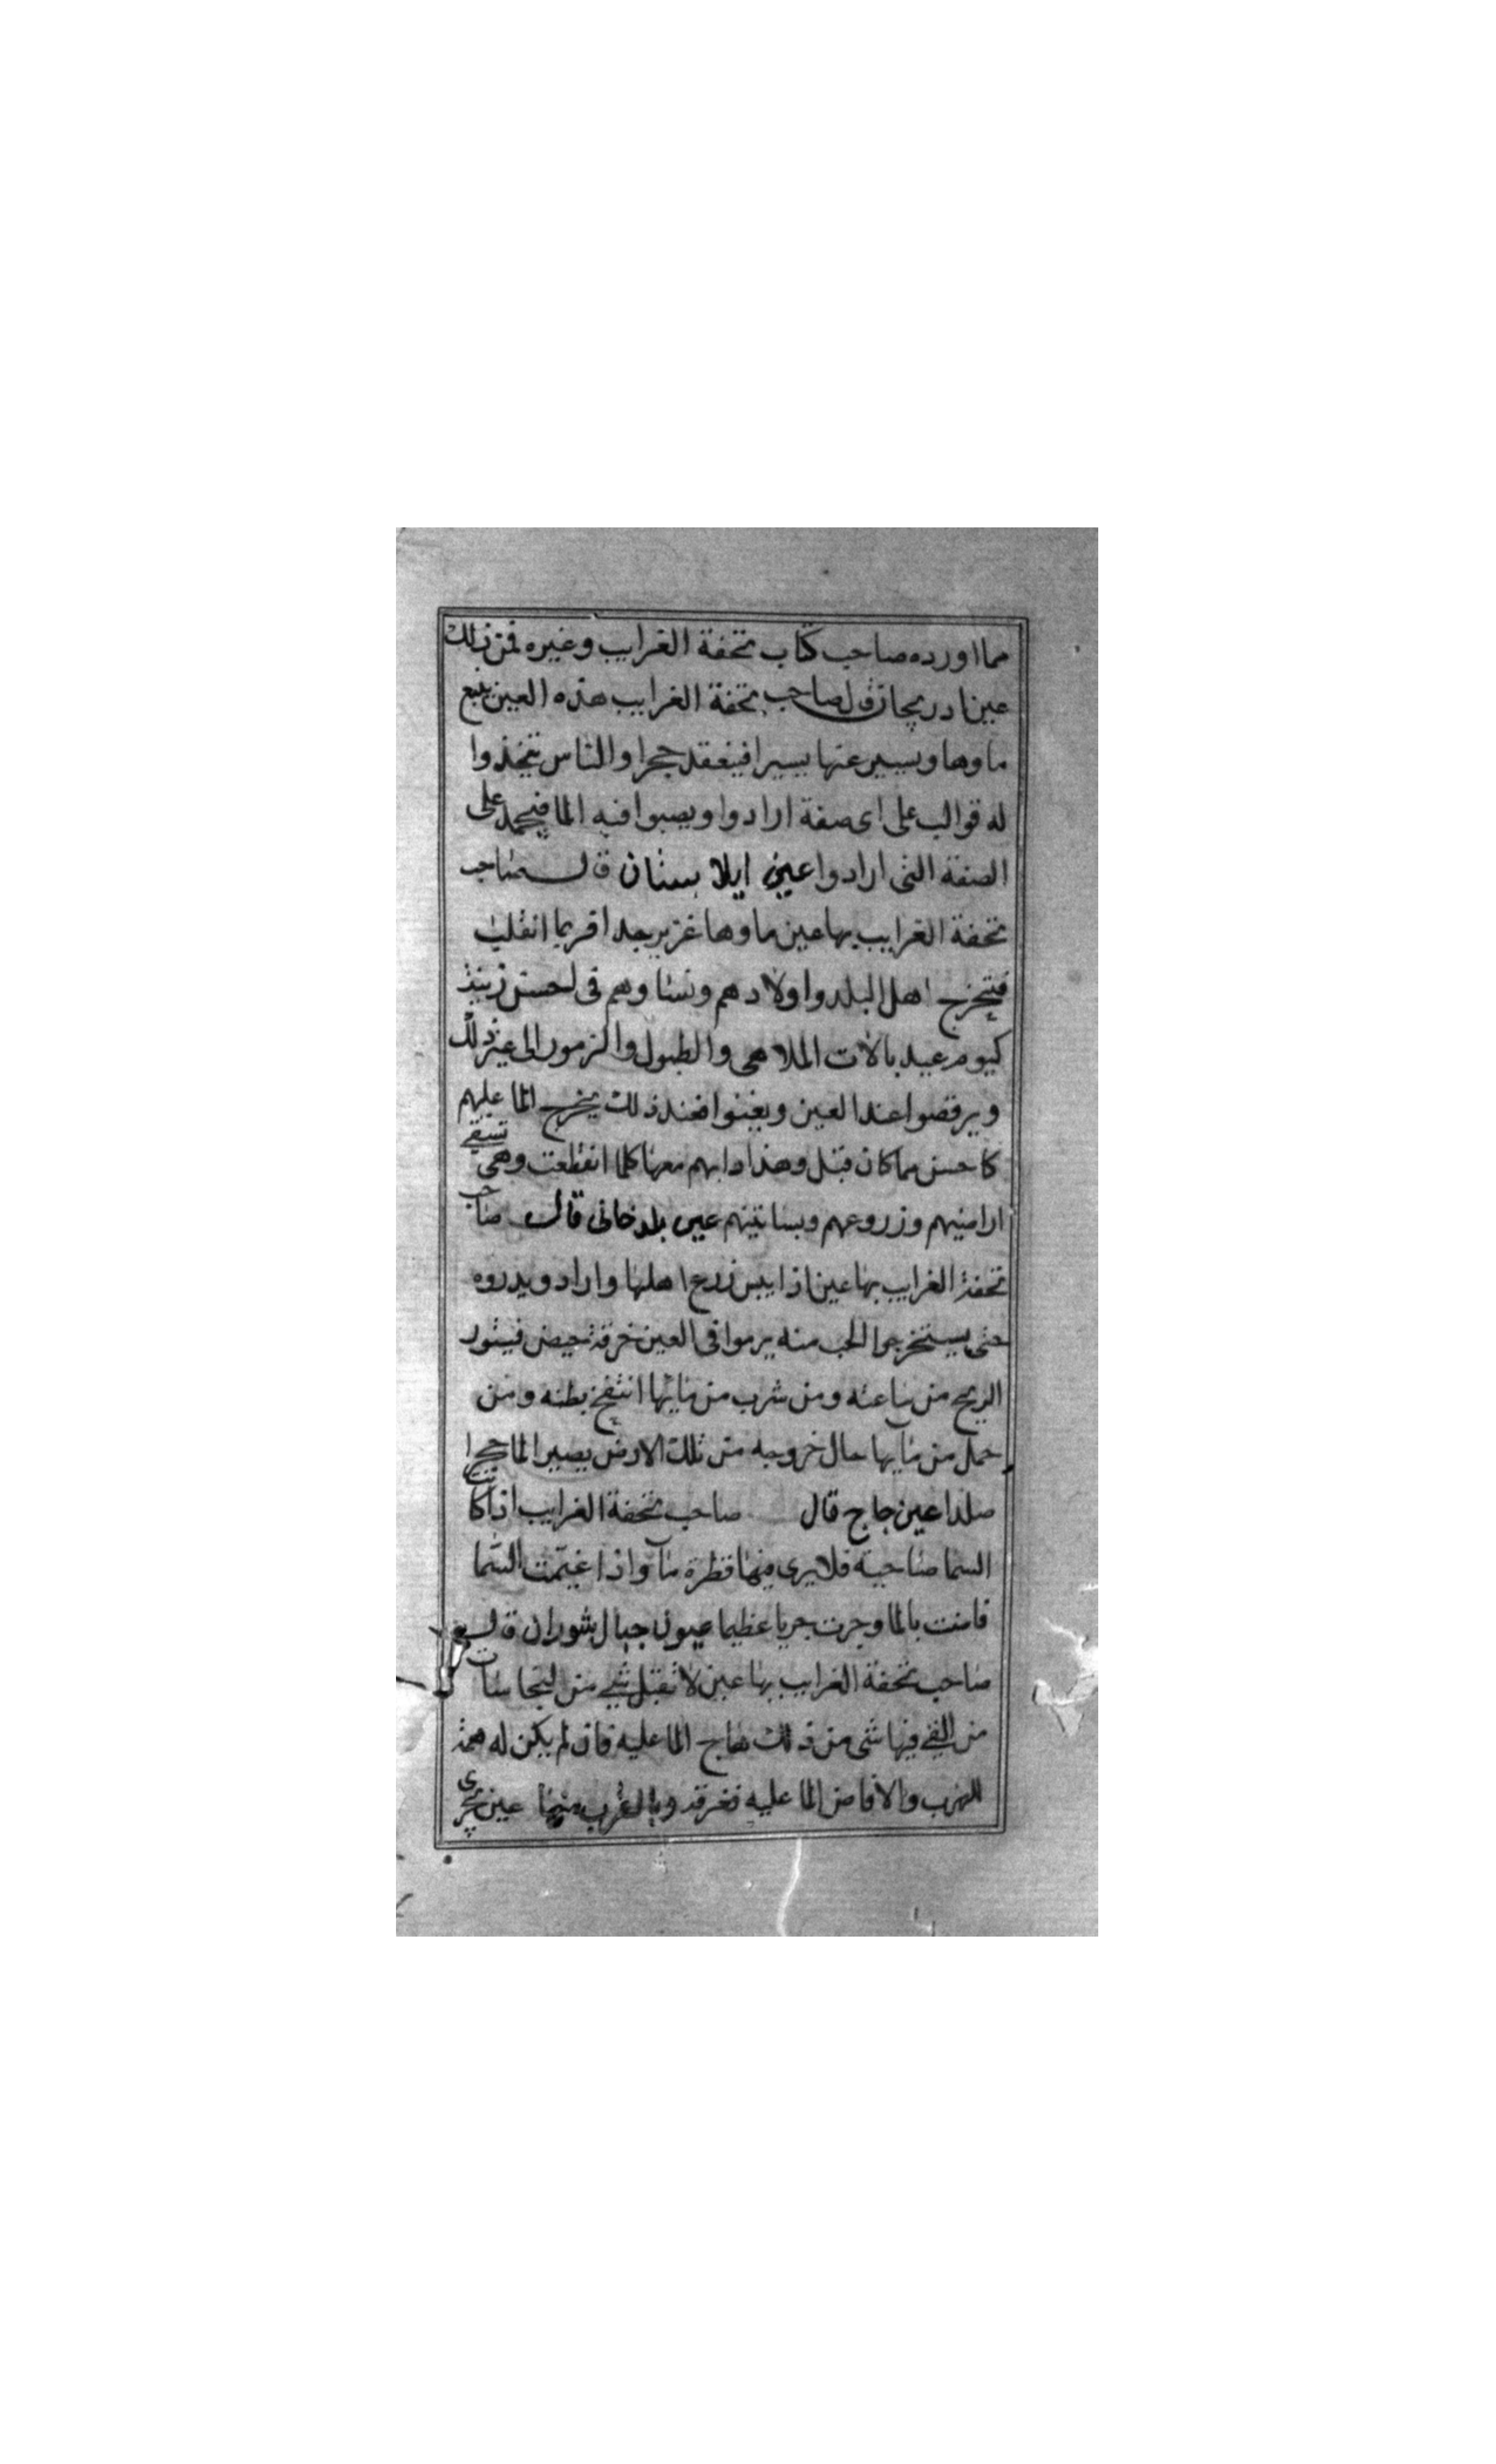 مما اورده صاحب كتاب تحفة الغرايب وغيره فمن ذلك
عين ادربيجان قال صاحب تحفة الغرايب هذه العين ينبع
ماوها ويسير عنها يسيرا فينعقد حجرا والناس يتخذوا
له قوالب على اى صفة ارادوا ويصبوا فيه الما فيجمد على
الصفة التى ارادوا عين ايلا بستان قال صاحب
تحفة الغرايب بها عين ماوها غزير جدا فربما انقلب
فتخرج اهل البلد واولادهم ونساوهم فى احسن زينة
كيوم عيد بالات الملاهى والطبول والزمور الى غير ذلك
ويرقصوا عند العين ويغنوا فعند ذلك يخرج الما عليهم
كاحسن مما كان قبل وهذا دابهم معها كلما انقطعت وهى تسقى
اراضيهم وزروعهم وبساتينهم عين بلد خانى قال صاحب
تحفة الغرايب بها عين اذا يبس زرع اهلها وارادو يذروه
حتى يستخرجوا الحب منه يرموا فى العين خرقة حيض فيثور
الريح من ساعته ومن شرب من مايها انتفخ بطنه ومن
حمل من مآيها حال خروجه من تلك الارض يصير الما حجرا
صلدا عين جاج قال صاحب تحفة الغرايب اذا كانت
السما صاحية فلا يرى فيها قطرة مآ واذا غيمت السما
فاضت بالما وجرت جريا عظيما عيون جبال بشوران قال
صاحب تحفة الغرايب بها عين لا تقبل شي من النجاسات
من القى فيها شى من ذلك هاج الما عليه فان لم يكن له همة
الهرب والا فاض الما عليه فغرقه وبالغرب منها عين تجرى